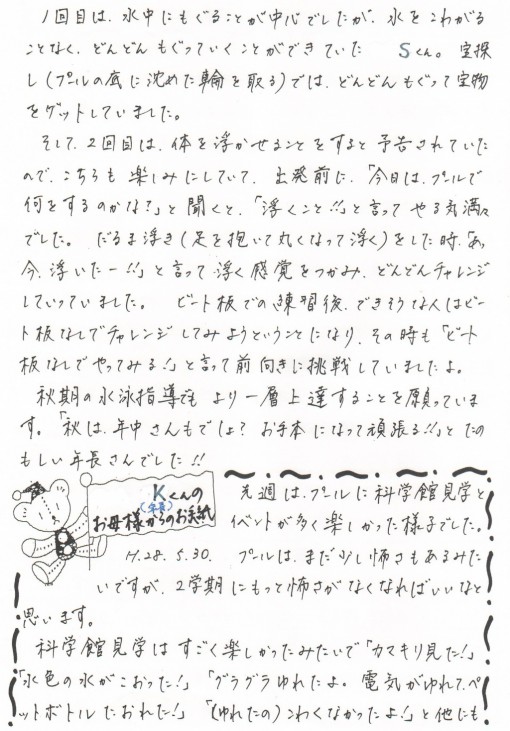 1回目は、水中にもぐることが中心でしたが、水をこわがる
ことなく、どんどんもぐっていくことができていた Sくん。宝探
し(プールの底に沈めた輪を取る)では、どんどんもぐって宝物
をゲットしていました。
そして、2回目は、体を浮かせることをすると予告されていた
ので、こちらも楽しみにしていて、出発前に、「今日は、プールで
何をするのかな?」と聞くと、「浮くこと!!」と言ってやる気満々
でした。だるま浮き(足を抱いて丸くなって浮く)をした時、「あっ
今、浮いたー!!」と言って浮く感覚をつかみ、どんどんチャレンジ
していっていました。ビート板での練習後、できそうな人はビー
ト板なしでチャレンジしてみようということになり、その時も「ビート
板なしでやってみる!」と言って前向きに挑戦していましたよ。
秋期の水泳指導でもより一層上達することを願っていま
す。「秋は、年中さんもでしょ?お手本になって頑張る!!」とたの
もしい年長さんでした!!
Kくんの
(年長)
お母様からのお手紙
先週は、プールに科学館見学と
イベントが多く楽しかった様子でした。
H.28.5.30. プールは、まだ少し怖さもあるみた
いですが、2学期にもっと怖さがなくなればいいなと
思います。
科学館見学はすごく楽しかったみたいで「カマキリ見た!」
「水色の水がこおった!」「グラグラゆれたよ。電気がゆれて、ペ
ットボトルたおれた!」「(ゆれたの)こわくなかったよ!」と他にも